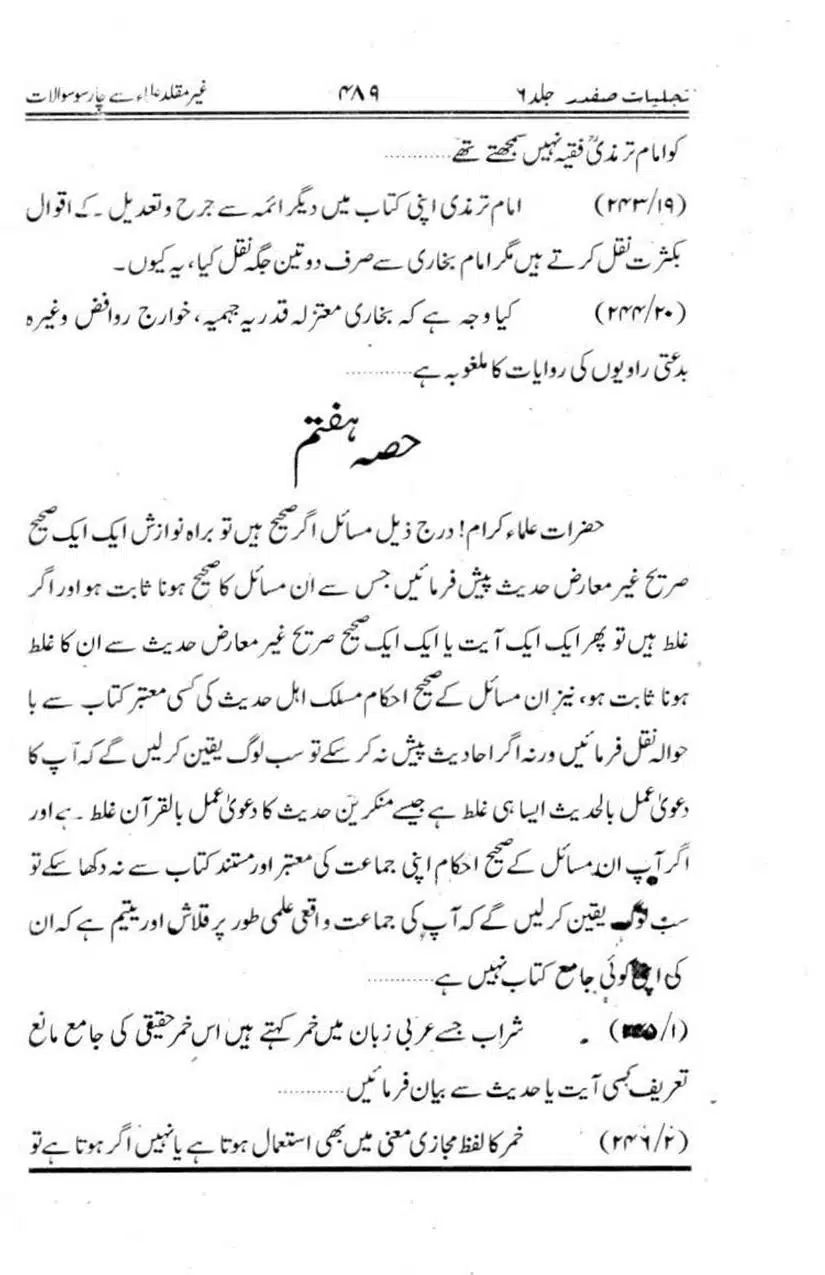 تجلیات صفدر جلد ۶ ۴۸۹ غیر مقلد علماء سے چار سو سوالات
کو امام ترمذیؒ فقیہ نہیں سمجھتے تھے............
(۲۴۳/۱۹) امام ترمذی اپنی کتاب میں دیگر ائمہ سے جرح و تعدیل ۔ کے اقوال
بکثرت نقل کرتے ہیں مگر امام بخاری سے صرف دو تین جگہ نقل کیا، یہ کیوں۔
(۲۴۴/۲۰) کیا وجہ ہے کہ بخاری معتزلہ قدریہ جہمیہ، خوارج روافض وغیرہ
بدعتی راویوں کی روایات کا ملغوبہ ہے............
حصہ ہفتم
حضرات علماء کرام! درج ذیل مسائل اگر صحیح ہیں تو براہ نوازش ایک ایک صحیح
صریح غیر معارض حدیث پیش فرمائیں جس سے ان مسائل کا صحیح ہونا ثابت ہو اور اگر
غلط ہیں تو پھر ایک ایک آیت یا ایک ایک صحیح صریح غیر معارض حدیث سے ان کا غلط
ہونا ثابت ہو، نیز ان مسائل کے صحیح احکام مسلک اہل حدیث کی کسی معتبر کتاب سے با
حوالہ نقل فرمائیں ورنہ اگر احادیث پیش نہ کر سکے تو سب لوگ یقین کر لیں گے کہ آپ کا
دعویٰ عمل بالحدیث ایسا ہی غلط ہے جیسے منکرین حدیث کا دعویٰ عمل بالقرآن غلط ۔ ہے اور
اگر آپ ان مسائل کے صحیح احکام اپنی جماعت کی معتبر اور مستند کتاب سے نہ دکھا سکے تو
سب لوگ یقین کر لیں گے کہ آپ کی جماعت واقعی علمی طور پر قلاش اور یتیم ہے کہ ان
کی اپنی کوئی جامع کتاب نہیں ہے............
(۲۴۵/۱) شراب جسے عربی زبان میں خمر کہتے ہیں اس خمر حقیقی کی جامع مانع
تعریف کسی آیت یا حدیث سے بیان فرمائیں............
(۲۴۶/۲) خمر کا لفظ مجازی معنی میں بھی استعمال ہوتا ہے یا نہیں اگر ہوتا ہے تو